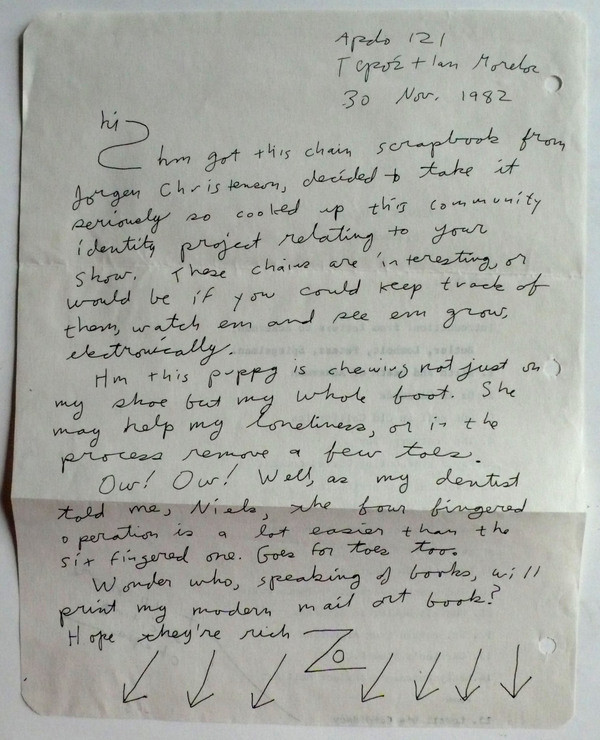 Apdo 121
Tepoztlan Morelos
30 Nov. 1982
hi
hm got this chain scrapbook from
Jorgen Christensen, decided to take it
seriously so cooked up this community
identity project relating to your
show. These chains are interesting, or
would be if you could keep track of
them, watch em and see em grow,
electronically.
Hm this puppy is chewing not just on
my shoe but my whole foot. She
may help my loneliness, or in the
process remove a few toes.
Ow! Ow! Well, as my dentist
told me, Niels, the four fingered
operation is a lot easier than the
six fingered one. Goes for toes too.
Wonder who, speaking of books, will
print my modern mail art book?
Hope they're rich